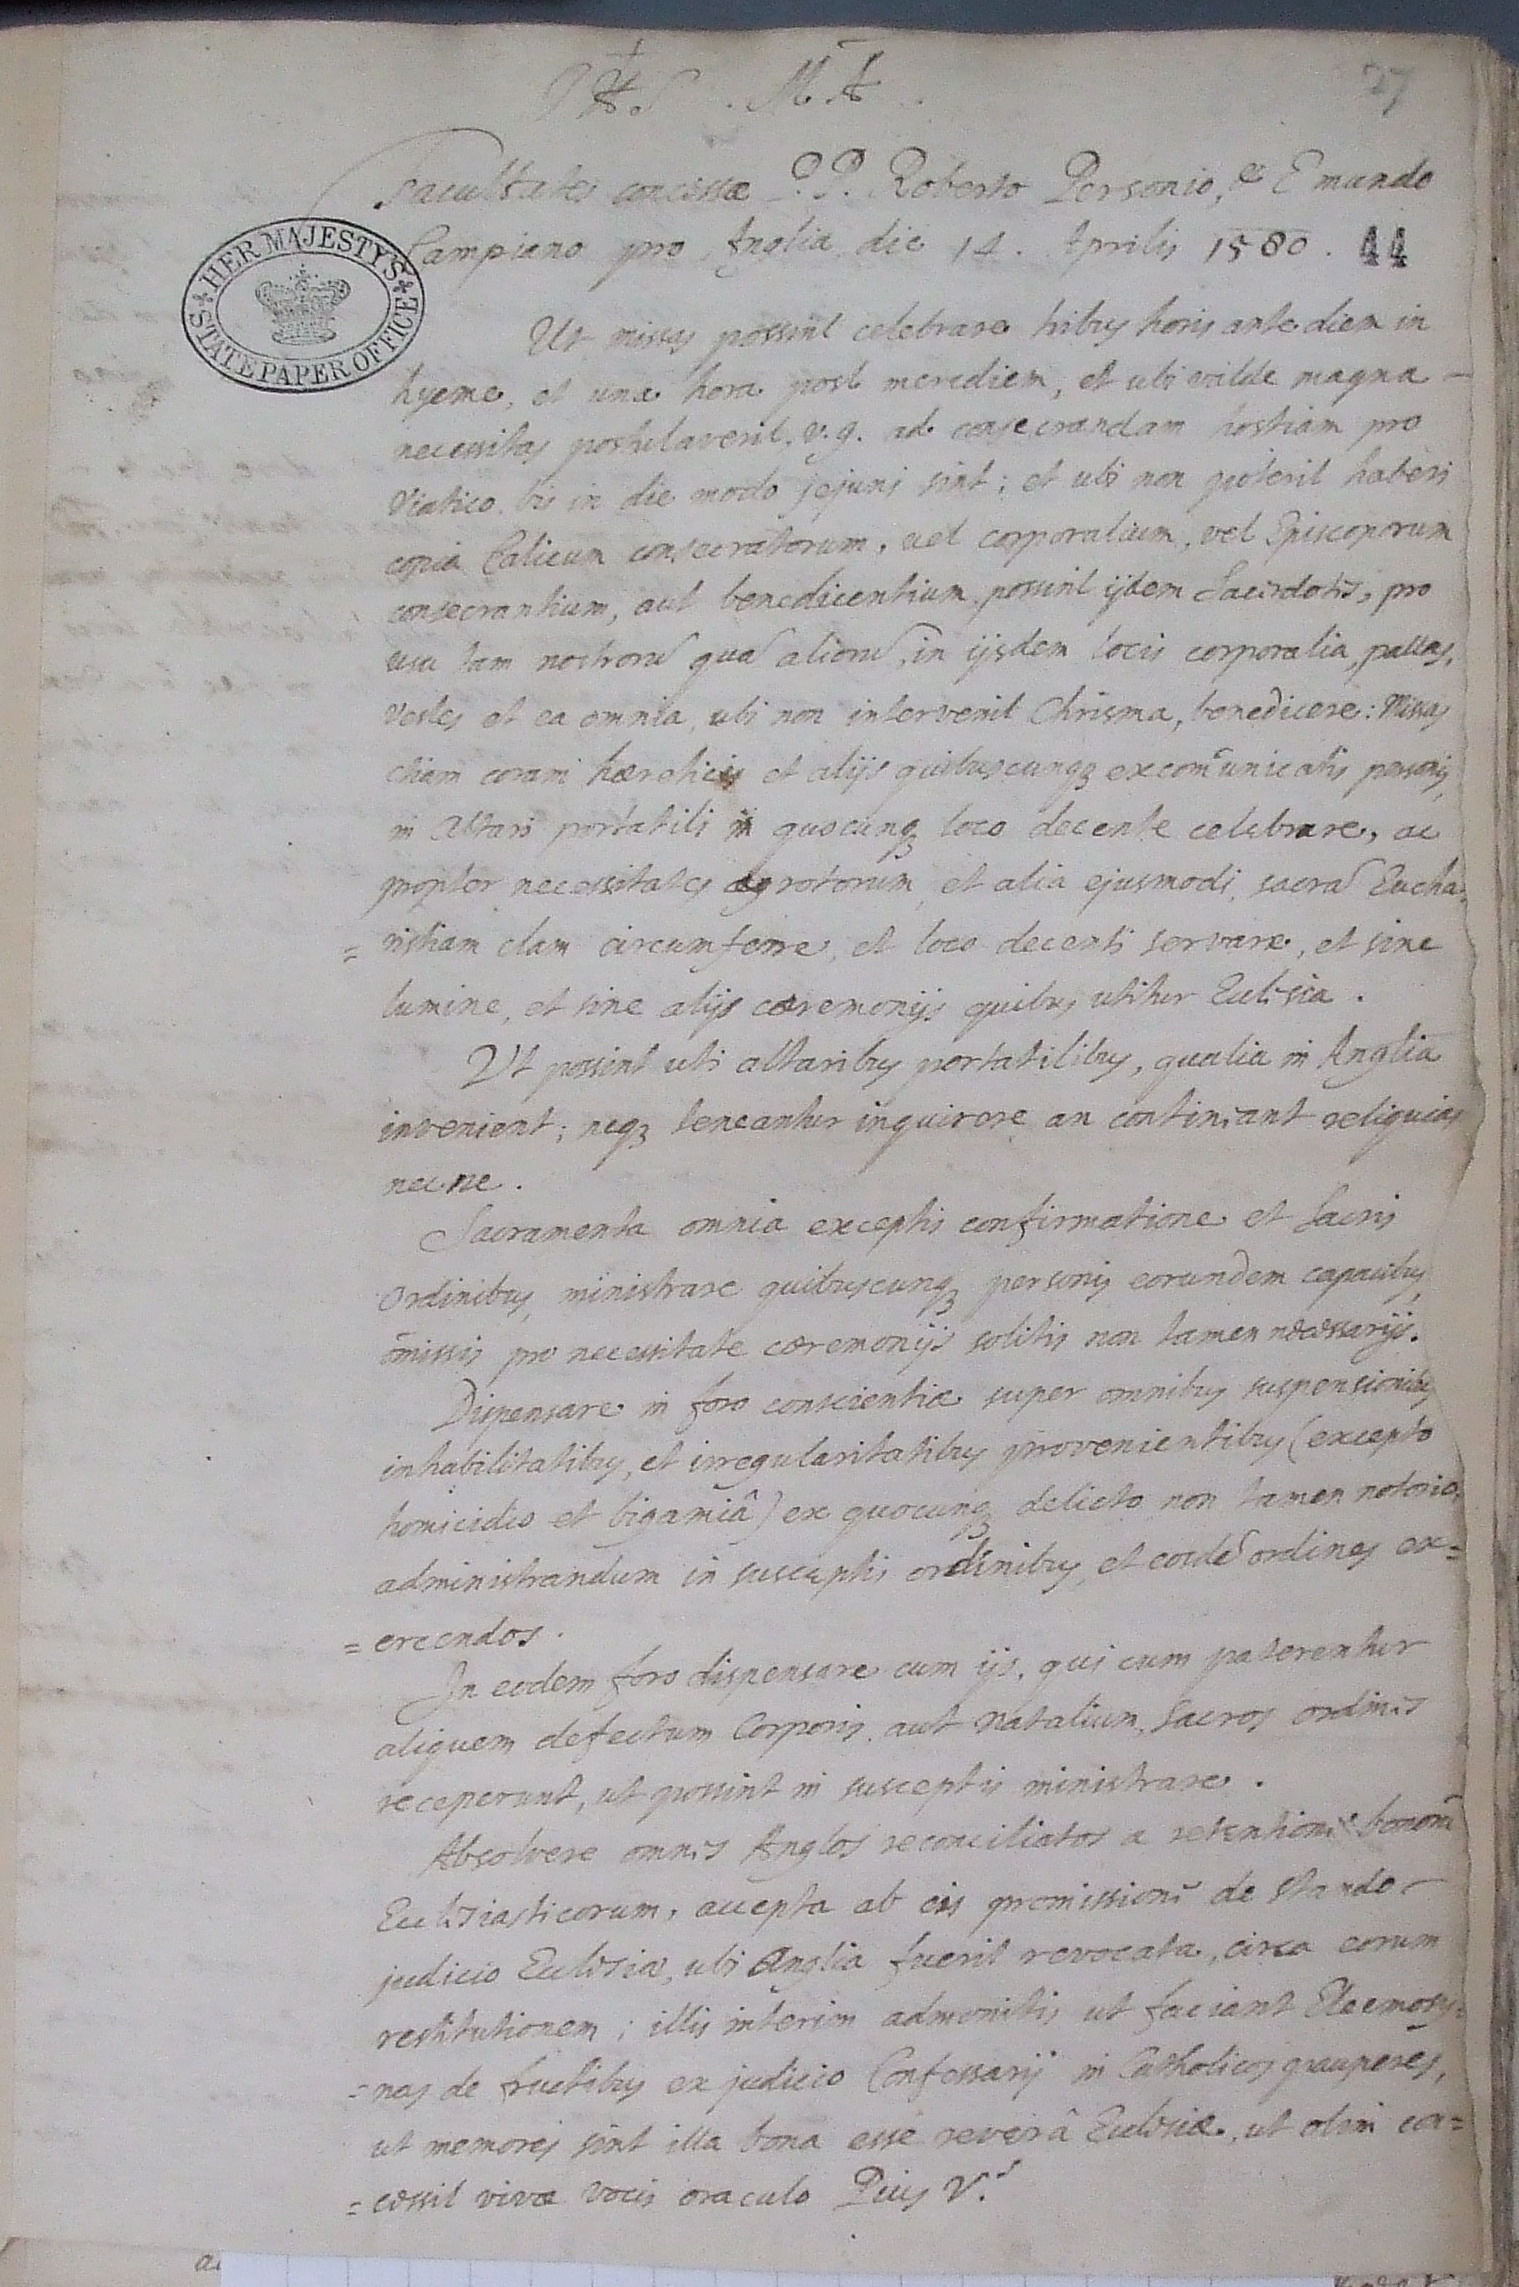 IHS . MA .
27
Facultates concessæ P. P. Roberto Personio, et Emundo
Campiano pro Anglia die 14. Aprilis 1580. 44
HER MAJESTY'S
STATE PAPER OFFICE
Ut missas possint celebrare tribus horis ante diem in
hyeme, et una hora post meridiem, et ubi valde magna
necessitas postulaverit, v.g. ad consecrandam hostiam pro
Viatico bis in die modo jejuni sint; et ubi non poterit haberi
copia Calicum consecratorum, vel corporalium, vel Episcoporum
consecrantium, aut benedicentium possint ijdem Sacerdotes, pro
usu tam nostrorū quā aliorū, in ijsdem locis corporalia, pallas,
Vestes et ea omnia, ubi non intervenit Chrisma, benedicere: Missas
etiam coram hæreticis et alijs quibuscunq excom̄unicatis personis,
in Altari portatili in quocunq loco decente celebrare, ac
propter necessitates ægrotorum, et alia ejusmodi, sacrā Eucha=
=ristiam clam circumferre, et loco decenti servare, et sine
lumine, et sine alijs cæremonijs quibus utitur Ecclesia.
Ut possint uti altaribus portatilibus, qualia in Anglia
invenient; neq teneantur inquirere an contineant reliquias
necne.
Sacramenta omnia exceptis confirmatione et Sacris
Ordinibus, ministrare quibuscunq personis eorundem capacibus,
omissis pro necessitate cæremonijs solitis non tamen necessarijs.
Dispensare in foro conscientiæ super omnibus suspensionibus
inhabilitatibus, et irregularitatibus provenientibus (excepto
homicidio et bigamiâ) ex quocunq delicto non tamen notorio,
administrandum in susceptis ordinibus, et eosdē ordines ex=
=ercendos.
In eodem foro dispensare cum ijs, qui cum paterentur
aliquem defectum Corporis aut Natalium, Sacros ordines
receperunt, ut possint in susceptis ministrare.
Absolvere omnes Anglos reconciliatos a retentione bonorū
Ecclesiasticorum, accepta ab eis promissione de stando
judicio Ecclesiæ, ubi Anglia fuerit revocata, circa eorum
restitutionem; illis interim admonitis ut faciant Eleemosy=
=nas de fructibus ex judicio Confessarij in Catholicos pauperes,
ut memores sint illa bona esse reverâ Ecclesiæ, ut olim con=
=cessit vivæ vocis oraculo Pius V.s